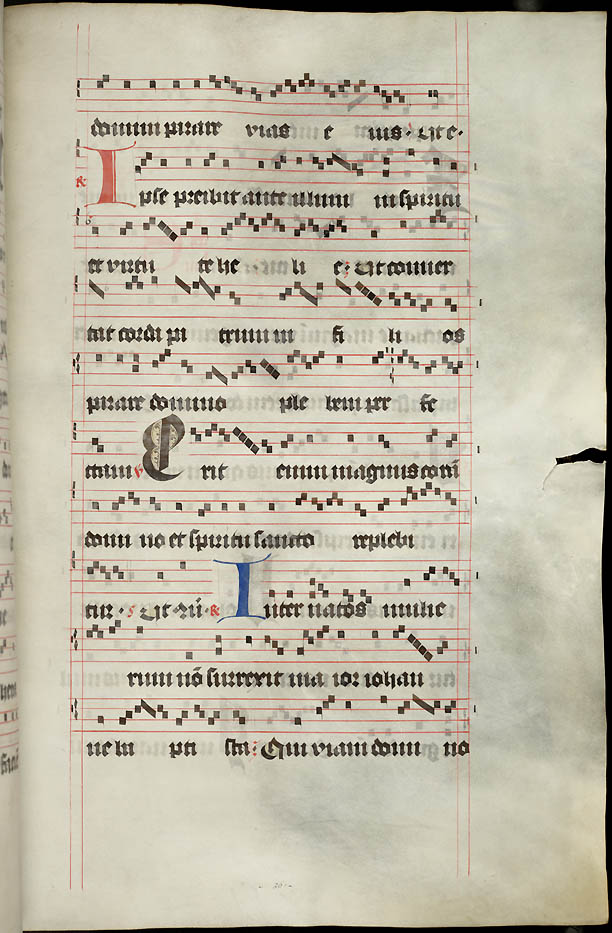 domini parare vias e ius. Ut e.
℟ Ipse preibit ante illum in spiritu
et virtu te he li e. Ut conver
tat corda pa trum in fi li os
parare domino ple bem per fe
ctam ℣ Erit enim magnus corā
domi no et spiritu sancto replebi
tur. Ut ℟ Inter natos mulie
rum nō surrexit ma ior iohan
ne ba pti sta: Qui viam domi no